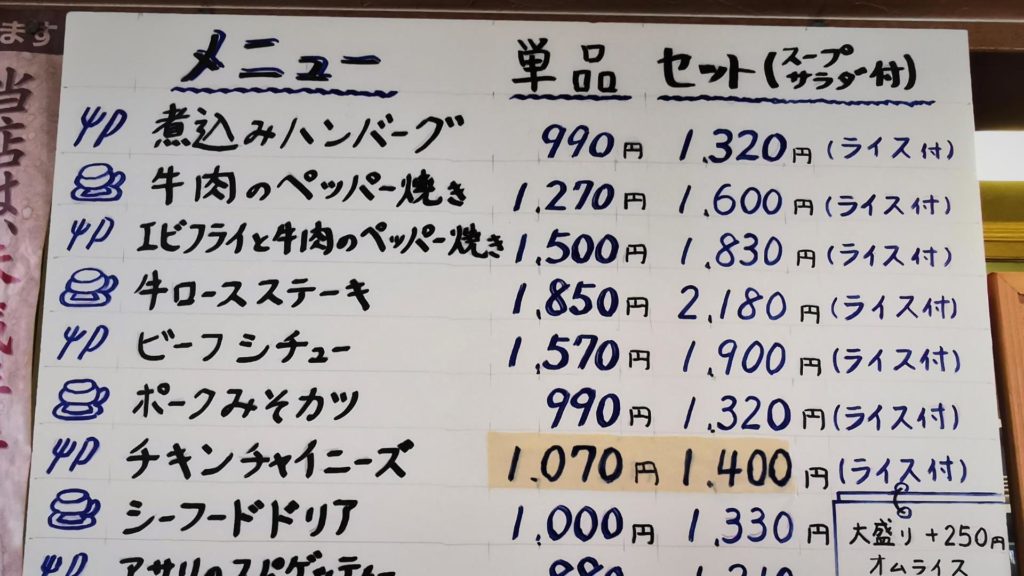 ます
メニュー 単品 セット(スープ サラダ付)
煮込みハンバーグ 990円 1.320円 (ライス付)
牛肉のペッパー焼き 1.270円 1.600円 (ライス付)
エビフライと牛肉のペッパー焼き 1.500円 1.830円 (ライス付)
牛ロースステーキ 1.850円 2.180円 (ライス付)
ビーフシチュー 1.570円 1.900円 (ライス付)
ポークみそカツ 990円 1.320円 (ライス付)
チキンチャイニーズ 1.070円 1.400円 (ライス付)
シーフードドリア 1.000円 1.330円
アサリのスパゲッティー 880
大盛り +250円
オムライス
当店は